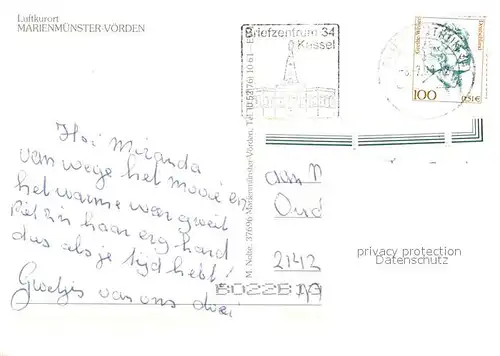 Luftkurort
MARIENMÜNSTER-VÖRDEN
Briefzentrum 34
Kassel
Grethe Weiser
Deutschland
100
0,51€
M. Nolte, 37696 Marienmünster-Vörden, Tel. (0 52 76) 10 61
Hoi Miranda
van wege het mooie en
het warme weer
Piet zin haar erg hard
dus als je tijd hebt!
Groetjes van ons drie
aan
Oud
2142
privacy protection
Datenschutz